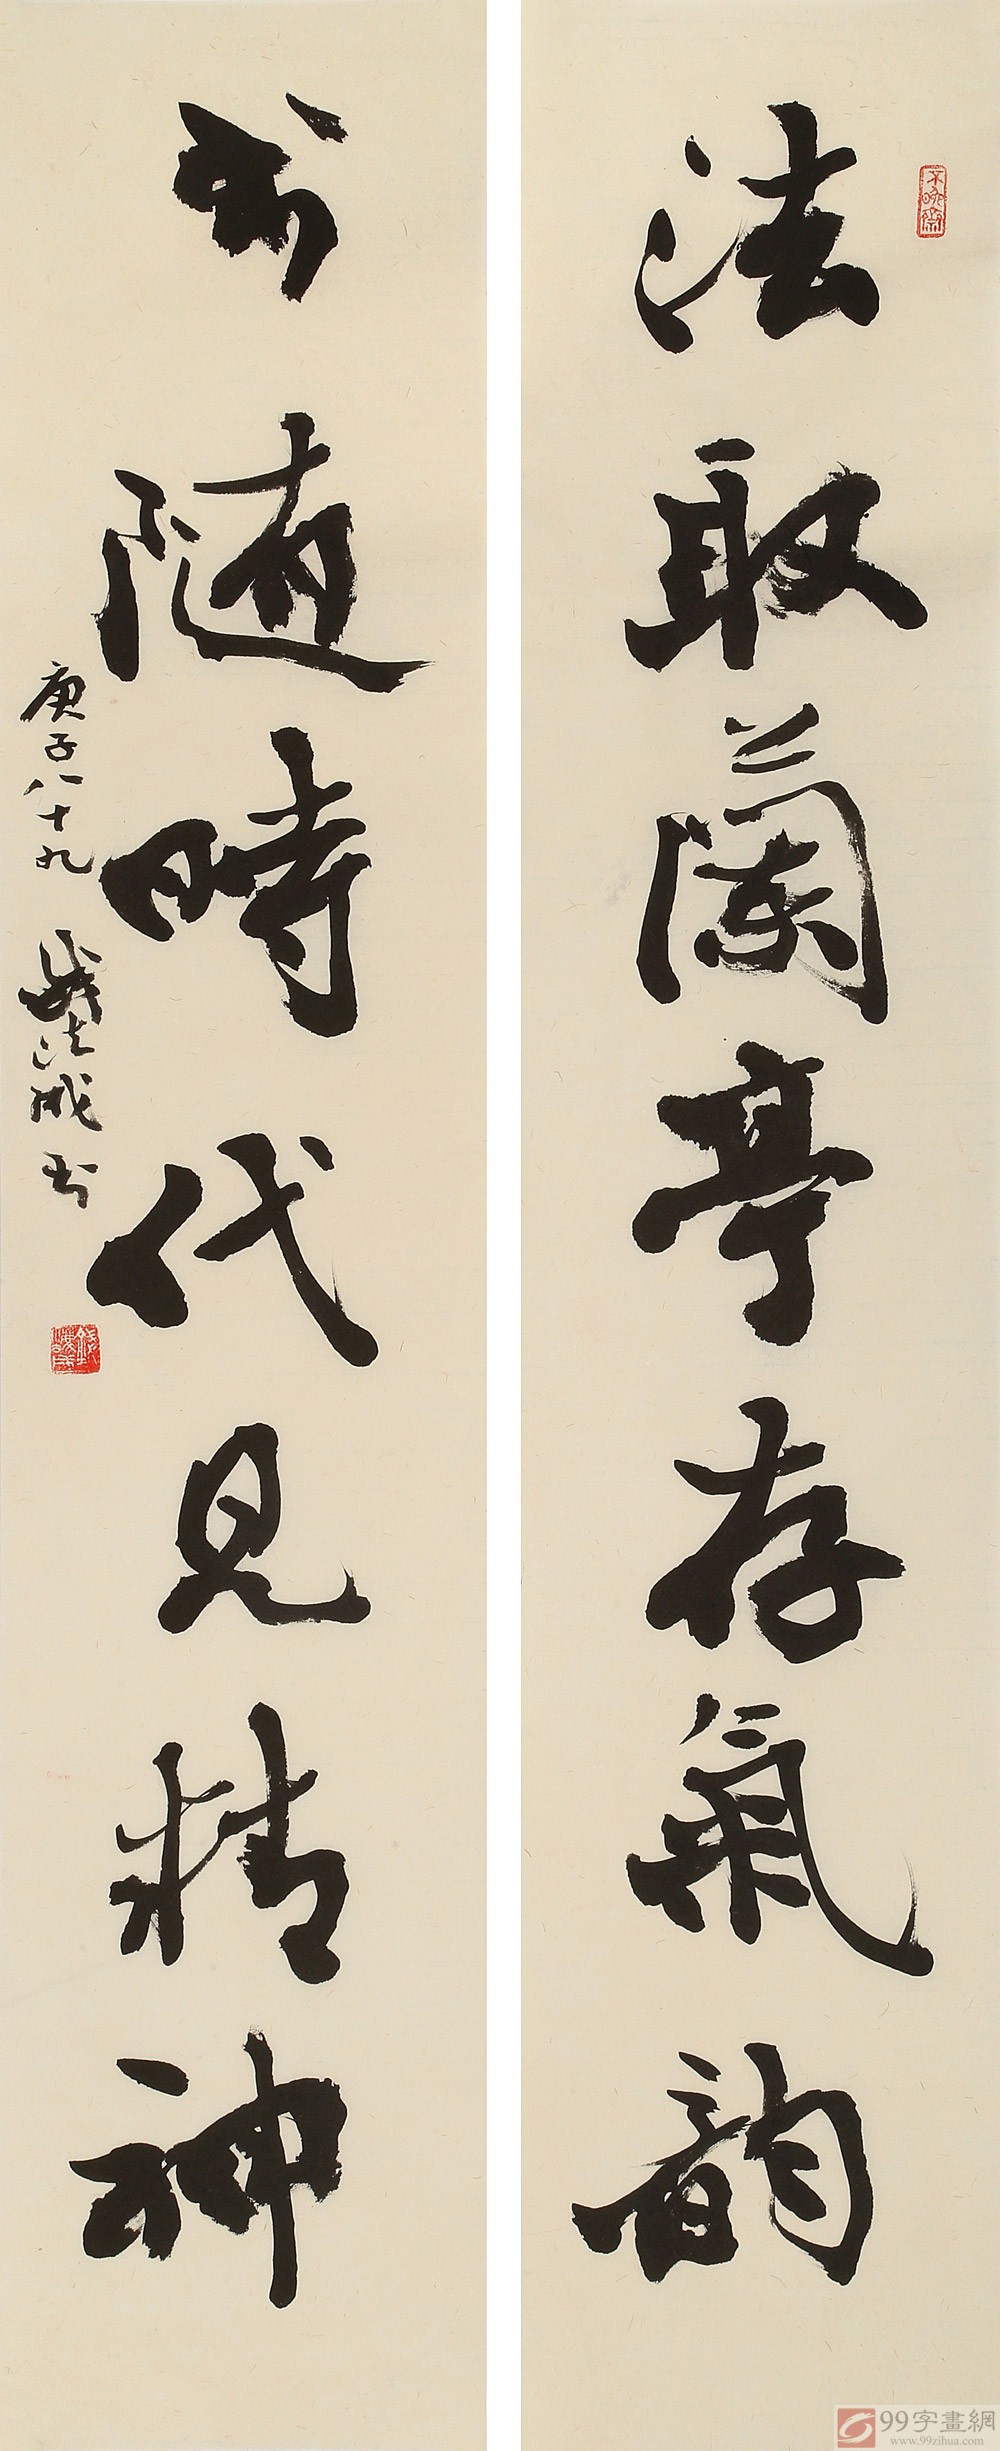 法取蘭亭存氣韻
书随時代見精神
庚子八十九 錢法成书
不晚齋
99字畫網
www.99zihua.com